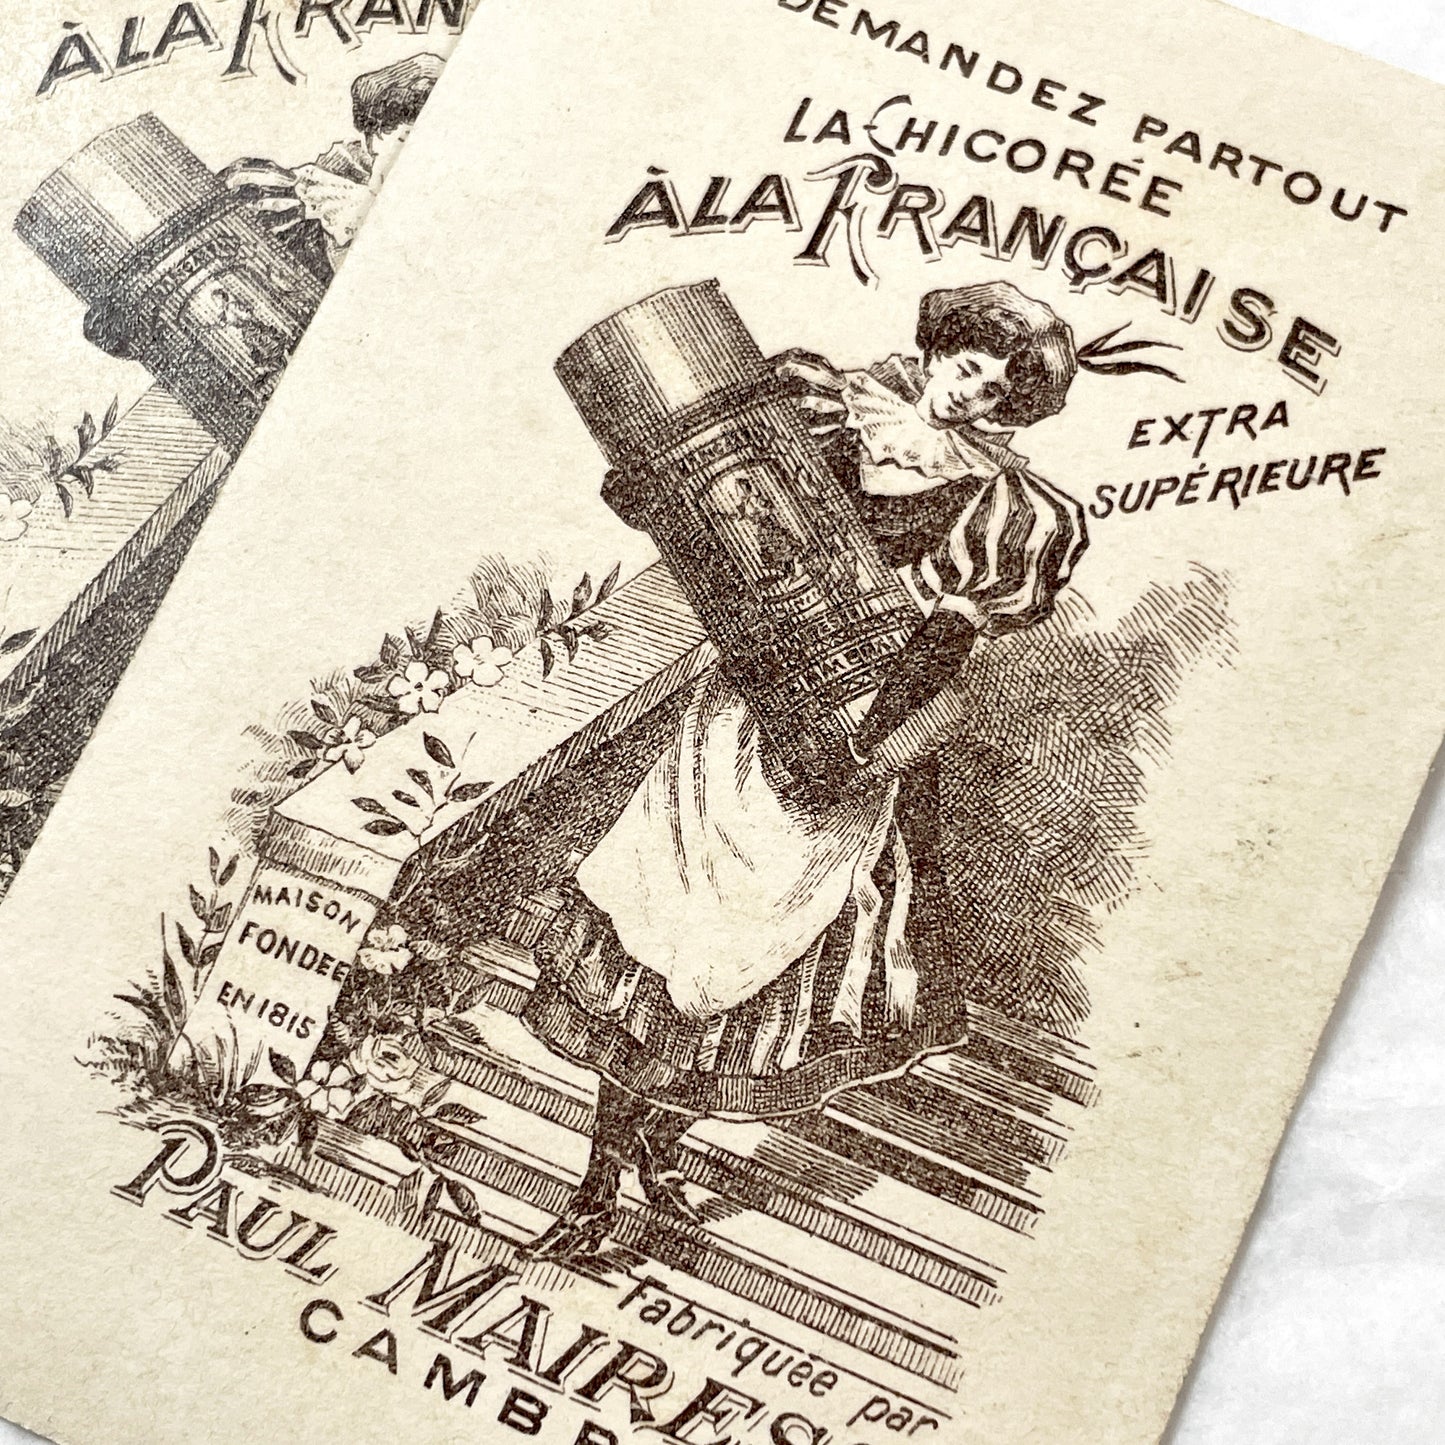 À LA FRAN
DEMANDEZ PARTOUT
LA CHICORÉE
À LA FRANÇAISE
EXTRA
SUPÉRIEURE
MAISON
FONDEE
EN 1815
Fabriquée par
PAUL MAIRES
CAMB